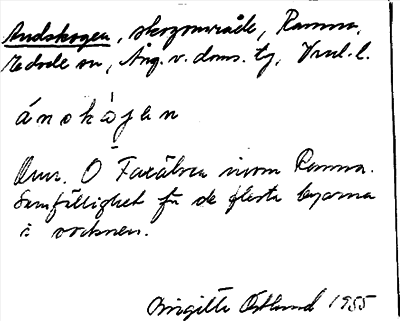 Andskogen, skogsområde, Ramma,
sn, Äng. v. doms. tj, Vrml. l.
ánskàjen
Anm. Ö Faxälven inom Ramma.
Samfällighet för de flesta byarna
i socknen.
Birgitta Östlund 1955